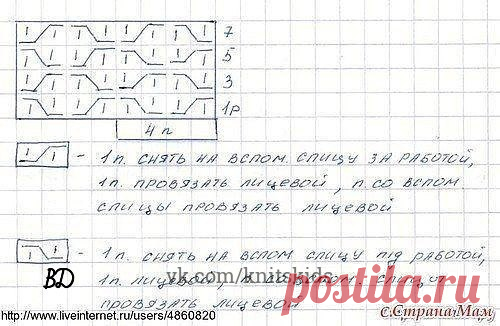 7
5
3
1р
4 п
- 1п. снять на вспом. спицу за работой,
1п. провязать лицевой, п. со вспом.
спицы провязать лицевой
- 1п. снять на вспом спицу під работой,
1п. лицевой,
провязать лицевой
ВД
vk.com/knitskids
postila.ru
http://www.liveinternet.ru/users/4860820
с.СтранаМам